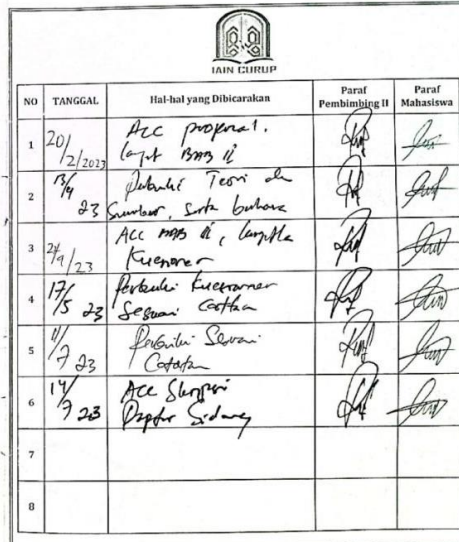 IAIN CURUP
NO TANGGAL Hal-hal yang Dibicarakan Paraf Pembimbing II Paraf Mahasiswa
1 20/2/2023 Acc proposal.
lanjut BAB II
2 23 Perbaiki Teori dan
Sumber, serta bahasa
3 /23 ACC BAB II, lanjutka
Kuesioner
4 17/5 23 Perbaiki Kuesioner
Sesuai Catatan
5 11/7 23 Perbaiki Sesuai
Catatan
6 14/7 23 Acc Skripsi
Daftar Sidang
7
8